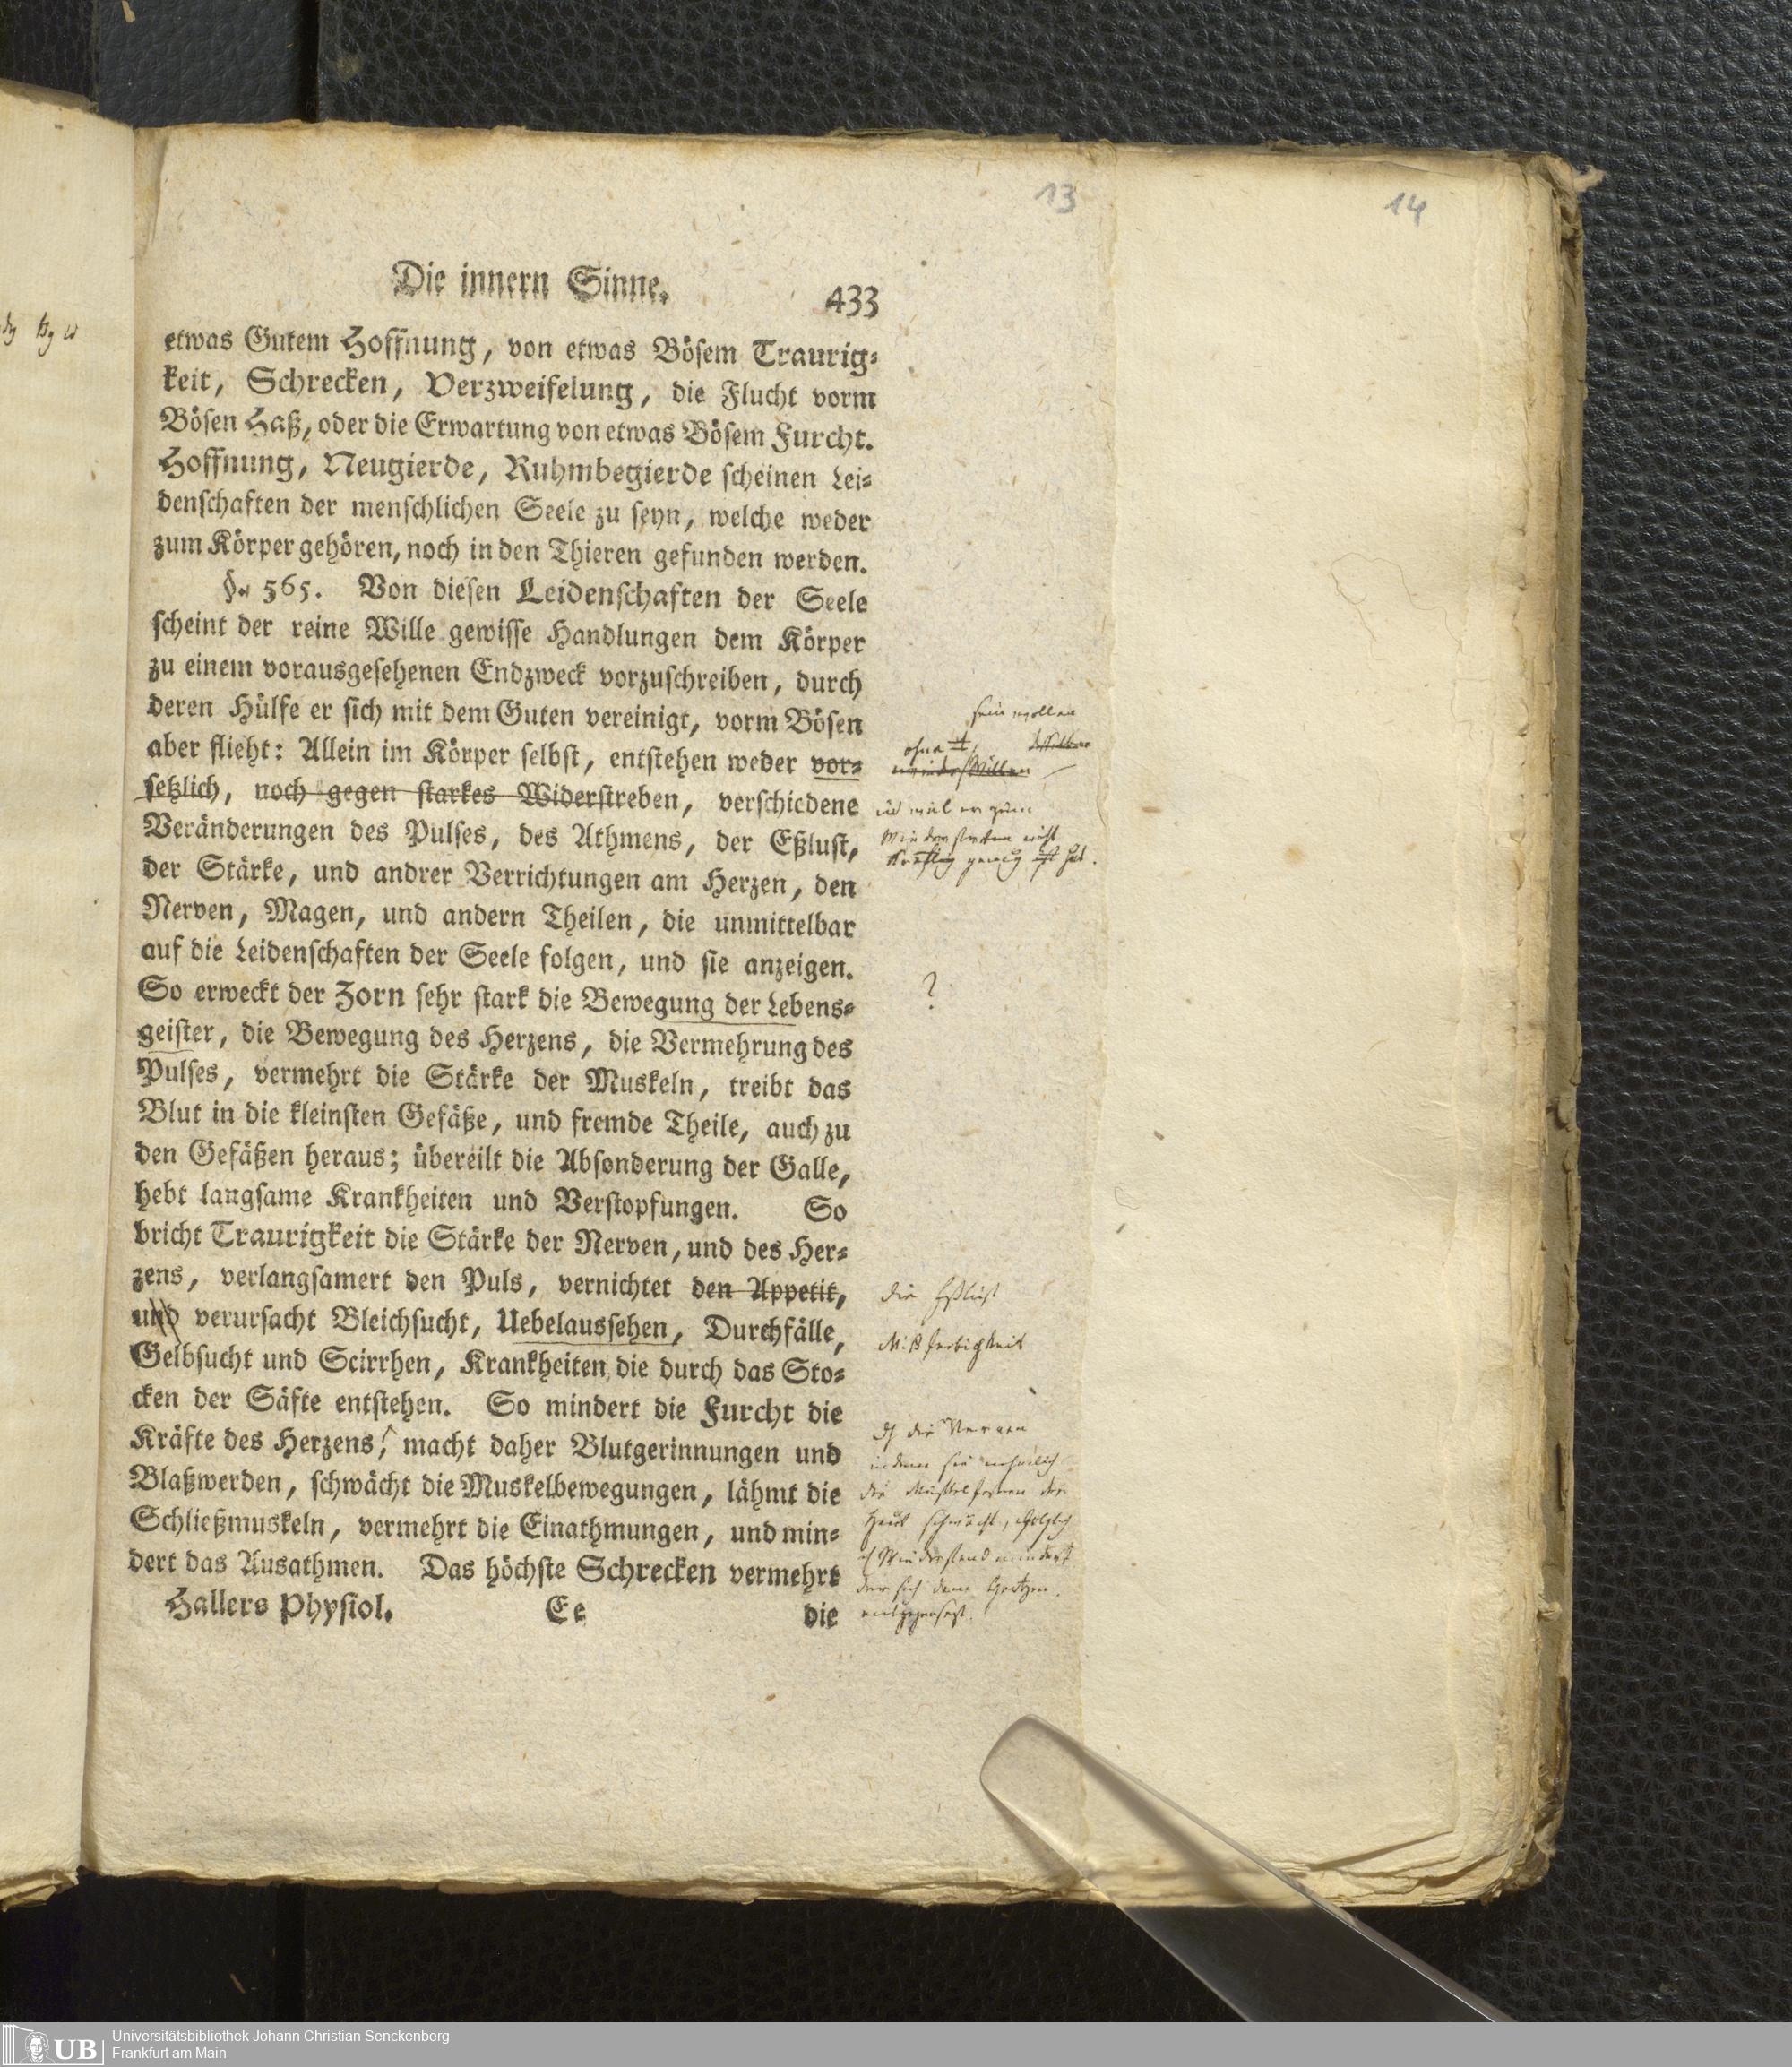 13
14
Die innern Sinne. 433
etwas Gutem Hoffnung, von etwas Bösem Traurig-
keit, Schrecken, Verzweifelung, die Flucht vorm
Bösen Haß, oder die Erwartung von etwas Bösem Furcht.
Hoffnung, Neugierde, Ruhmbegierde scheinen Lei-
denschaften der menschlichen Seele zu seyn, welche weder
zum Körper gehören, noch in den Thieren gefunden werden.
§. 565. Von diesen Leidenschaften der Seele
scheint der reine Wille gewisse Handlungen dem Körper
zu einem vorausgesehenen Endzweck vorzuschreiben, durch
deren Hülfe er sich mit dem Guten vereinigt, vorm Bösen
aber flieht: Allein im Körper selbst, entstehen weder vor-
setzlich, noch gegen starkes Widerstreben, verschiedene
Veränderungen des Pulses, des Athmens, der Eßlust,
der Stärke, und andrer Verrichtungen am Herzen, den
Nerven, Magen, und andern Theilen, die unmittelbar
auf die Leidenschaften der Seele folgen, und sie anzeigen.
So erweckt der Zorn sehr stark die Bewegung der Lebens-
geister, die Bewegung des Herzens, die Vermehrung des
Pulses, vermehrt die Stärke der Muskeln, treibt das
Blut in die kleinsten Gefäße, und fremde Theile, auch zu
den Gefäßen heraus; übereilt die Absonderung der Galle,
hebt langsame Krankheiten und Verstopfungen. So
bricht Traurigkeit die Stärke der Nerven, und des Her-
zens, verlangsamert den Puls, vernichtet den Appetit,
und verursacht Bleichsucht, Uebelaussehen, Durchfälle,
Gelbsucht und Scirrhen, Krankheiten die durch das Sto-
cken der Säfte entstehen. So mindert die Furcht die
Kräfte des Herzens, macht daher Blutgerinnungen und
Blaßwerden, schwächt die Muskelbewegungen, lähmt die
Schließmuskeln, vermehrt die Einathmungen, und min-
dert das Ausathmen. Das höchste Schrecken vermehrt
Hallers Physiol. Ee die
sein wollen
ohne
und weil er zum
Wiederstreben nicht
kräftig genug hat.
?
die Eßlust
Mißfarbigkeit
die Nerven
indem sie
die Muskelfasern der
Haut schwächt, folglich
Wiederstand mindert
der sich dem Herzen
entgegensezt.
Universitätsbibliothek Johann Christian Senckenberg
UB Frankfurt am Main